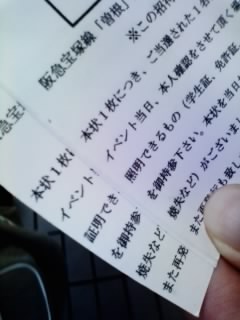 阪急宝塚線「曽根
※この招待
本状1枚につき、ご当選された1名
イベント当日、本人確認をさせて頂く場
照明できるもの(学生証、免許証
を御持参下さい。本状を当日
焼失など)がございまし
また再
阪急宝
本状1枚
イベント
証明でき
を御持参
焼失など
また再発